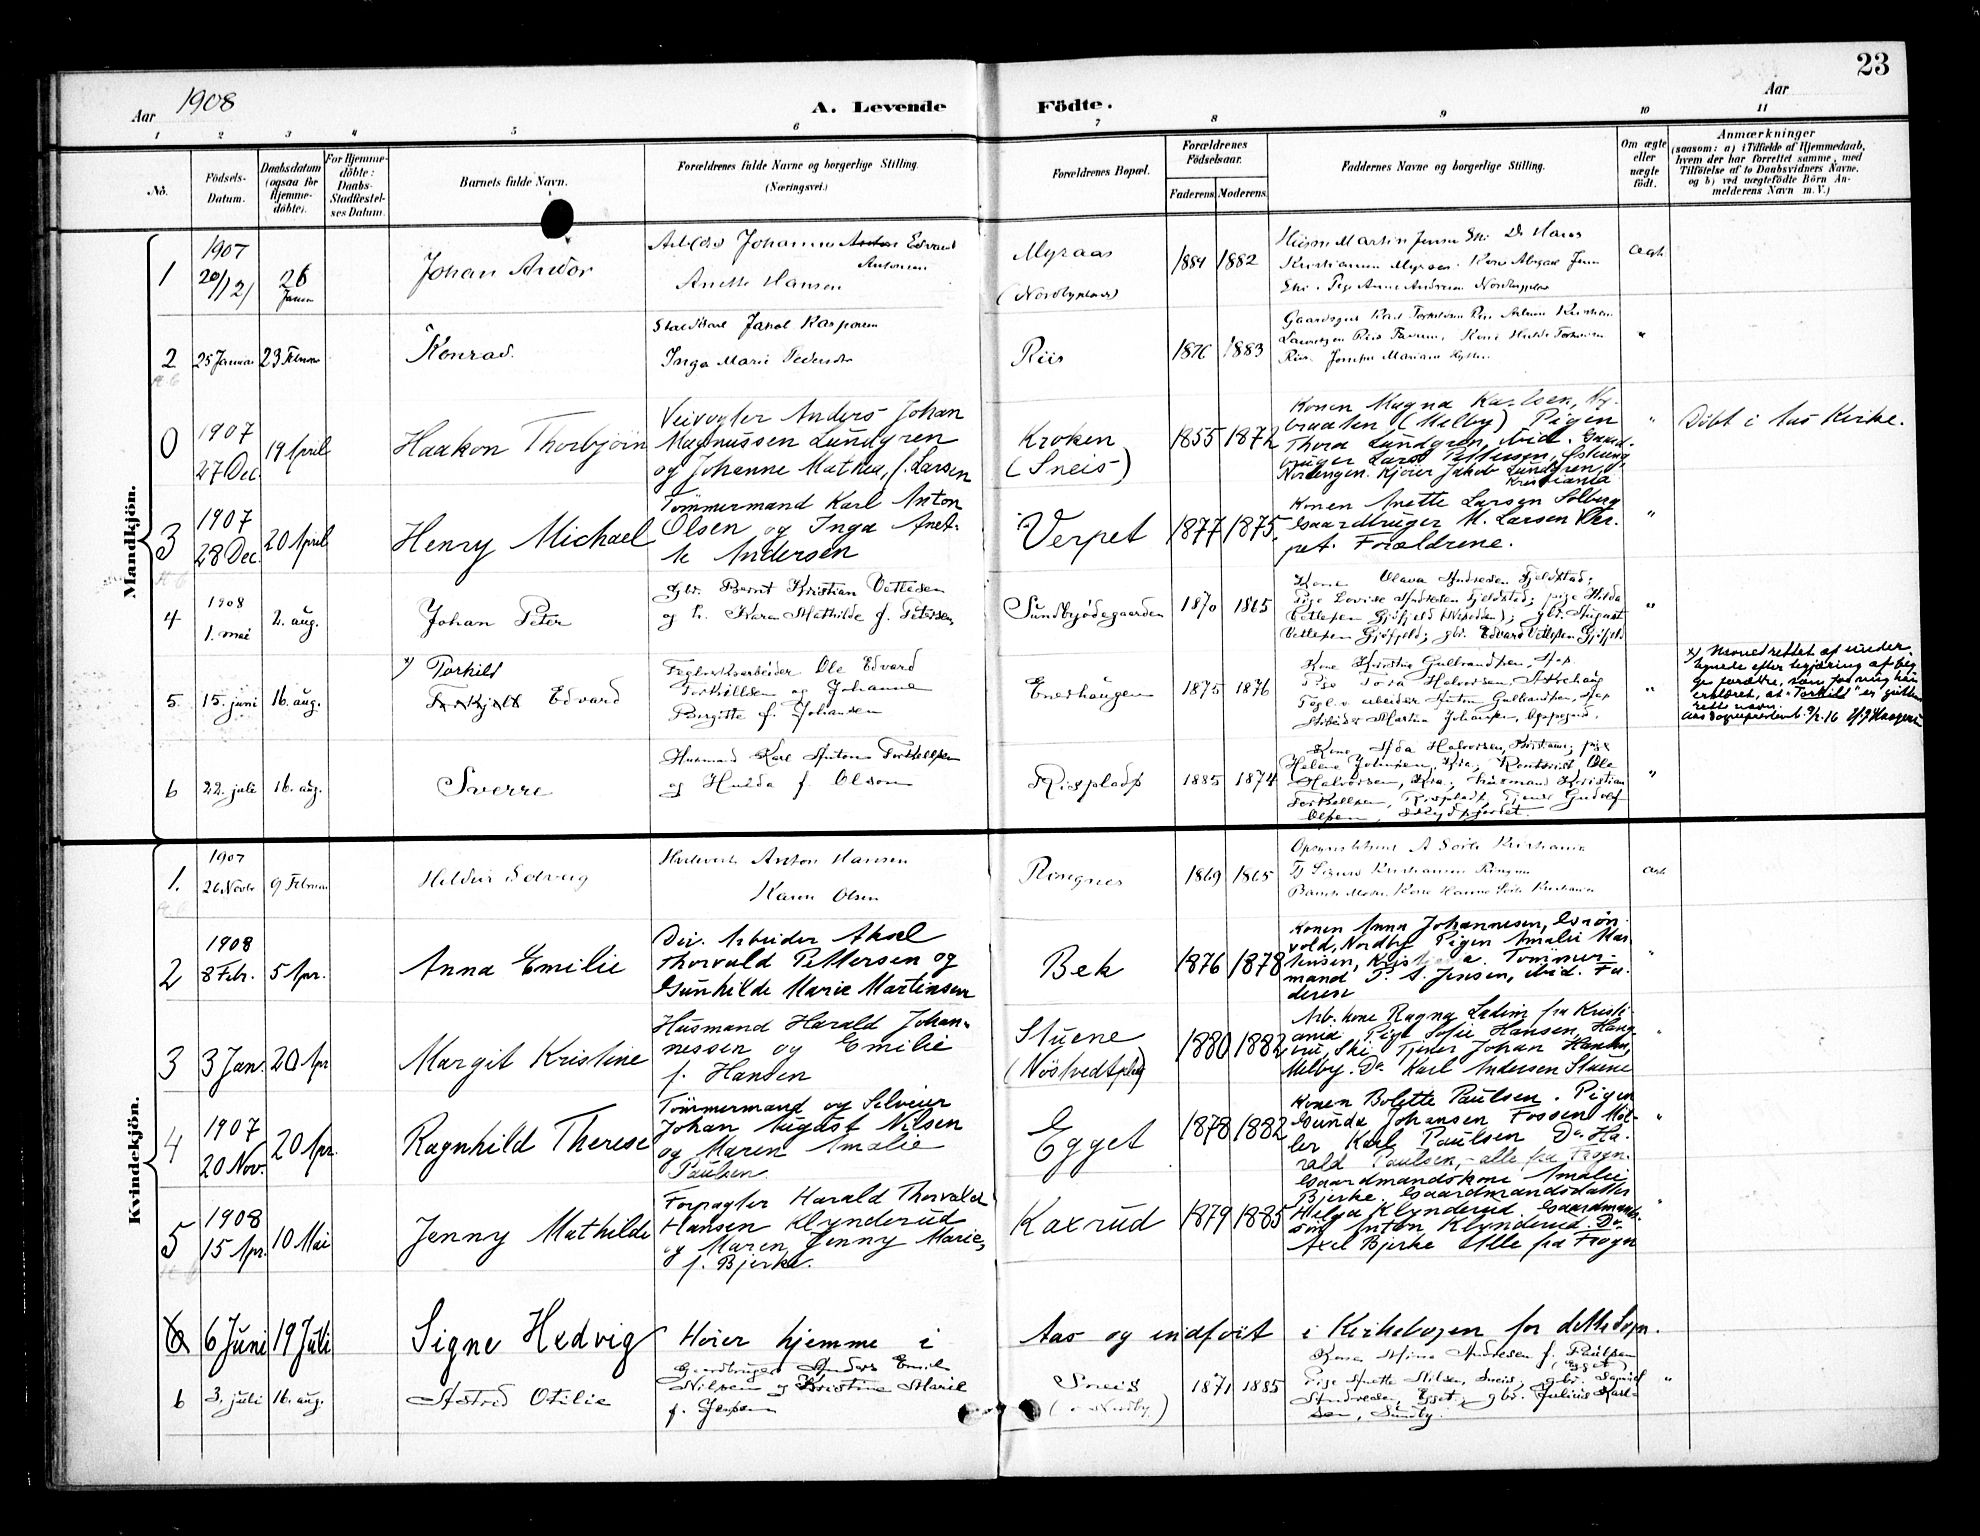 23
Aar 1908
A. Levende Födte.
Aar
1 2 3 4 5 6 7 8 9 10 11
No.
Födsels-Datum.
Daabsdatum (ogsaa for Hjemme-döbte).
For Hjemme-döbte: Daabs-Stadfæstel-ses Datum.
Barnets fulde Navn.
Forældrenes fulde Navne og borgerlige Stilling. (Næringsvei.)
Forældrenes Bopæl.
Forældrenes Födselsaar.
Faderens. Moderens.
Faddernes Navne og borgerlige Stilling.
Om ægte eller uægte födt.
Anmærkninger
(saasom: a) i Tilfælde af Hjemmedaab,
hvem der har forrettet samme, med
Tilföielse af to Daabsvidners Navne,
og b) ved uægtefödte Börn An-
melderens Navn m. V.)
Mandkjön.
1 1907 20/12 26 Januar
Johan Andor
Johannes Anton Edvard
Antonsen
Anette Hansen
Myraas
(Nordbyplads)
1881 1882
Ægte
2 25 Januar 23 Februar
Konrad.
Jakob Kaspersen
Inga Marie Pedersdtr
Riis
1876 1883 "
0 1907 27 Dec. 19 April
Haakon Thorbjörn
Veivogter Anders Johan
Magnussen Lundgren
og Johanne Mathea, f. Larsen
Kroken
(Sneis)
1855 1872
Konen Magna Karlsen, Ny-
braaten (Melby) Pigen
Thora Lundgren, ibid. Gaard-
bruger Lars Pettersen,
Nordengen. Kjører Jakob Lundgren,
Kristiania
"
Döbt i Aas Kirke.
3 1907 28 Dec. 20 April
Henry Michael
Tömmermand Karl Anton
Olsen og Inga Anet-
te Andersen
Verpet
1877 1875
Konen Anette Larsen Solberg
Gaardbruger M. Larsen Ver-
pet. Forældrene.
"
4 1908 1. mai 2. aug.
Johan Peter
Gbr. Bernt Kristian Vetlesen
og h. Karen Mathilde f. Petersen
Sundbyødegaarden
1870 1865
Kone Olava Andresen Fjeldstad;
Pige Lovise Andresen Fjeldstad; pige Hilda
Vetlesen Gjøfjeld (Nesodden); gbr. August
Vetlesen Gjøfjeld; gbr. Edvard Vetlesen Gjøfjeld
"
5. 15. juni 16. aug.
x) Torkild
Torkjeld Edvard
Teglverksarbeider Ole Edvard
Torkildsen og Johanne
Birgitte f. Johansen
Enerhaugen
1875 1876
Kone Kristine Gulbrandsen,
Pige Tora Halvorsen,
Teglv. arbeider Anton Gulbrandsen,
Arbeider Martin Johansen,
"
x) Navnet rettet af under-
tegnede efter begjæring af beg-
ge forældre, som for mig har
erklæret, at "Torkild" er guttens
rette navn.
Aas sogneprestemb. 9/2 16
6 22. juli 16. aug.
Sverre
Husmand Karl Anton Torkildsen
og Hulda f. Olsen
Risplads
1885 1874
Kone Ida Halvorsen, Kristiania; pige
Helene Johnsen, Kra;
Ole
Halvorsen, Kra; husmand Kristian
Torkildsen, Risplads, Tjener Gudolf
Olsen,
"
Kvindekjön.
1. 1907 26 Novbr 9 Februar
Hildur Solveig
Anton Hansen
Karen Olsen
Ringnes
1869 1865
Ægte
2 1908 8 Feb. 5 Apr.
Anna Emilie
Div. Arbeider Aksel
Thorvald Pettersen og
Gunhilde Marie Martinsen
Bek
1876 1878
Konen Anna Johannesen, Grön-
vold, Nordby Pigen Amalie Mar-
tinsen, Kristiania. Tømmer-
mand P. A. Jensen, ibid. Fa-
deren
"
3 3 Jan. 20 Apr
Margit Kristine
Husmand Harald Johan-
nessen og Emilie
f. Hansen
Stuene
(Nöstvedtpl.)
1880 1882
Arb. kone Ragna Ladim fra Kristi-
ania Pige Sofie Hansen, Haug-
en, Ski, Tjener Johan Hansen,
Melby. Do Karl Andersen Stuene
"
4 1907 20 Nov. 20 Apr.
Ragnhild Therese
Tömmermand og Selveier
Johan August Nilsen
og Maren Amalie
Paulsen
Egget
1878 1882
Konen Bolette Paulsen. Pigen
Gunda Johansen Fossen Møl-
ler Karl Paulsen Do Ha-
rald Paulsen, - alle fra Frogn.
"
5 1908 15 Apr. 10 Mai
Jenny Mathilde
Forpagter Harald Thorvald
Hansen Klynderud
og Maren Jenny Marie,
f. Bjerke.
Kaxrud
1879 1885
Gaardmandskone Amalie
Bjerke. Gaardmandsdatter
Helga Klynderud. Gaardmand-
sön Anton Klynderud. Do
Axel Bjerke Alle fra Frogn
"
6 6 Juni 19 Juli
Signe Hedvig
Hører hjemme i Aas og indfört i Kirkebogen for dette Sogn.
6 3. juli 16. aug.
Astrid Otilie
Gaardbruger Anders Emil
Nilsen og Kristine Marie
f. Jensen
Sneis
(i Nordby)
1871 1885
Kone Mina Andresen f. Paulsen
(Egget)
Pige Anette Nilsen, Sneis; gbr.
Andresen, Egget; gbr. Julius Karl-
sen, Sundby.
"